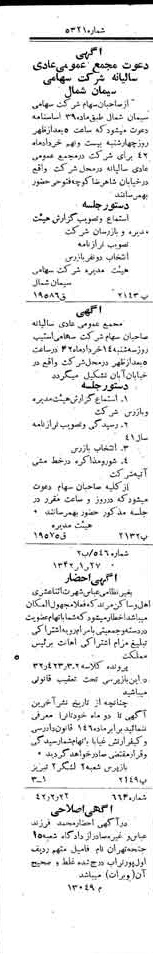 شماره ۵۳۲۱
آگهی
دعوت مجمع عمومی عادی
سالیانه شرکت سهامی
سیمان شمال
از صاحبان سهام شرکت سهامی
سیمان شمال طبق ماده ۳۹ اساسنامه
دعوت میشود که ساعت ۵ بعدازظهر
روز چهارشنبه بیست ونهم خردادماه
۴۲ برای شرکت در مجمع عمومی
عادی سالیانه در محل شرکت واقع
در خیابان شاهرضا کوچه فتوحی حضور
دستور جلسه
استماع وتصویب گزارش هیئت
مدیره و بازرسان شرکت
تصویب ترازنامه
انتخاب دونفر بازرس
هیئت مدیره شرکت سهامی
سیمان شمال
پ ۲۱۴۳ ق ۱۹۵۸۶
آگهی
مجمع عمومی عادی سالیانه
صاحبان سهام شرکت سهامی استیپ
روز سه‌شنبه ۱۴ خرداد ماه ۴۲ در ساعت
۵ بعدازظهر در محل شرکت واقع در
خیابان آبان تشکیل میگردد
دستور جلسه
۱. استماع گزارش هیئت مدیره
وبازرس شرکت
۲. رسیدگی وتصویب ترازنامه
سال ۴۱
۳. انتخاب بازرس
۴. شور ومذاکره در خط مشی
آتیه شرکت
از کلیه صاحبان سهام دعوت
میشود که در روز و ساعت مقرر در
جلسه مذکور حضور بهم رسانند
هیئت مدیره
پ ۲۱۳۲ ق ۱۹۵۷۵
شماره ۵۴۶/ب۲
۱۳۴۲ر۱ر۲۷
آگهی احضار
بغیر نظامی عباس شهرت اثناعشری
اهل وساکن مرند که فعلا مجهول المکان
میباشد اخطار میشود که شما باتهام عضویت
در دسته وجمعیتی با مرام ورویه اشتراکی
تبلیغ مرام اشتراکی اهانت برئیس
مملکت
پرونده کلاسه
در این بازپرسی تحت تعقیب قانونی
میباشید
چنانچه از تاریخ نشر آخرین
آگهی تا دو ماه خود را معرفی
ننمائید برابر ماده ۱۴۶ قانون دادرسی
و کیفر ارتش غیابا باتهام شما رسیدگی
و قرار مقتضی صادر خواهد گردید
بازپرس شعبه ۲ لشگر ۲ تبریز
پ ۲۱۴۹ ۳-۱
شماره ۶۶۴ ۴۲ر۲ر۲۲
آگهی اصلاحی
در آگهی احضار محمد فرزند
عباس و غیره صادر از دادگاه شعبه ۱۵
جنحه تهران نام فامیل متهم ردیف
اول پورتراب درج شده غلط و صحیح
آن میباشد
م ۱۳۰۴۹